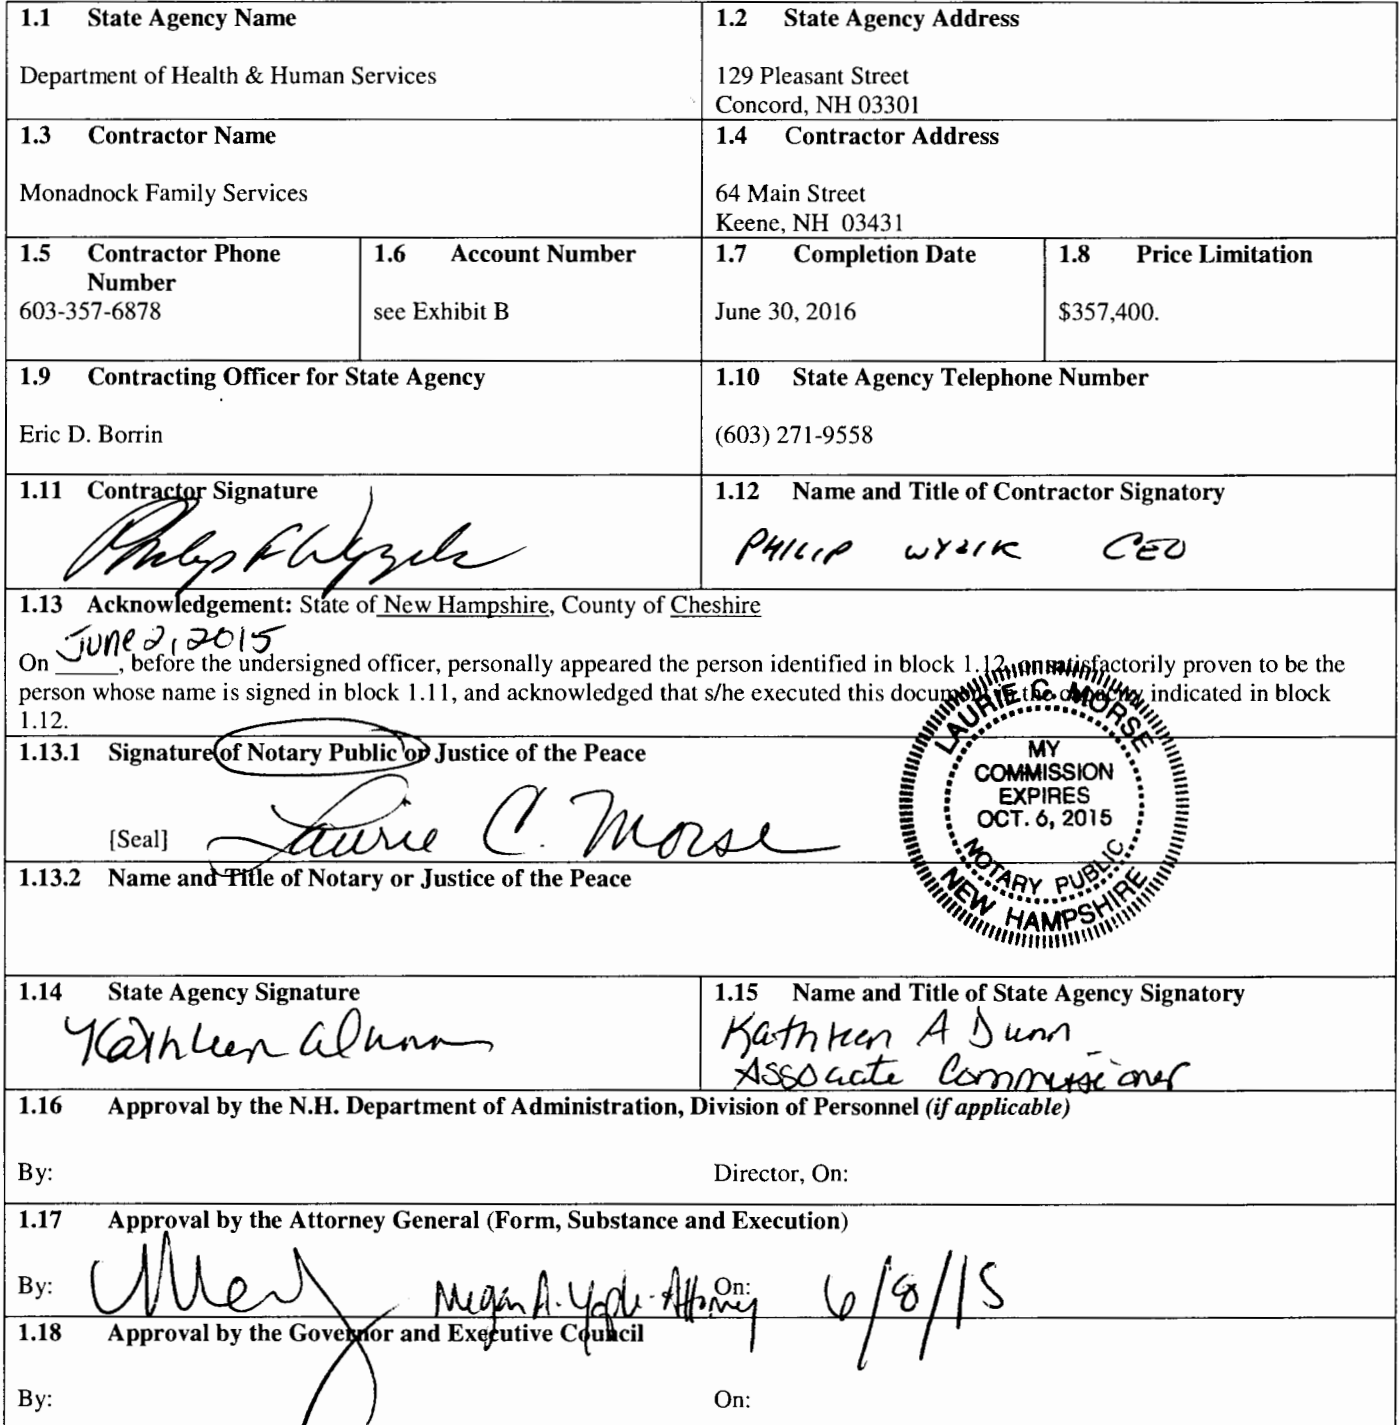 1.1 State Agency Name
Department of Health & Human Services
1.2 State Agency Address
129 Pleasant Street
Concord, NH 03301
1.3 Contractor Name
Monadnock Family Services
1.4 Contractor Address
64 Main Street
Keene, NH 03431
1.5 Contractor Phone
Number
603-357-6878
1.6 Account Number
see Exhibit B
1.7 Completion Date
June 30, 2016
1.8 Price Limitation
$357,400.
1.9 Contracting Officer for State Agency
Eric D. Borrin
1.10 State Agency Telephone Number
(603) 271-9558
1.11 Contractor Signature
Philip F Wyzik
1.12 Name and Title of Contractor Signatory
PHILIP WYZIK CEO
1.13 Acknowledgement: State of New Hampshire, County of Cheshire
June 2, 2015
On ______, before the undersigned officer, personally appeared the person identified in block 1.12, or satisfactorily proven to be the
person whose name is signed in block 1.11, and acknowledged that s/he executed this document in the capacity indicated in block
1.12.
1.13.1 Signature of Notary Public or Justice of the Peace
[Seal] Laurie C. Morse
LAURIE C. MORSE
MY
COMMISSION
EXPIRES
OCT. 6, 2015
NOTARY PUBLIC
NEW HAMPSHIRE
1.13.2 Name and Title of Notary or Justice of the Peace
1.14 State Agency Signature
Kathleen A Dunn
1.15 Name and Title of State Agency Signatory
Kathleen A Dunn
Associate Commissioner
1.16 Approval by the N.H. Department of Administration, Division of Personnel (if applicable)
By: Director, On:
1.17 Approval by the Attorney General (Form, Substance and Execution)
By: Megan A. Yaple - Attorney On: 6/8/15
1.18 Approval by the Governor and Executive Council
By: On: